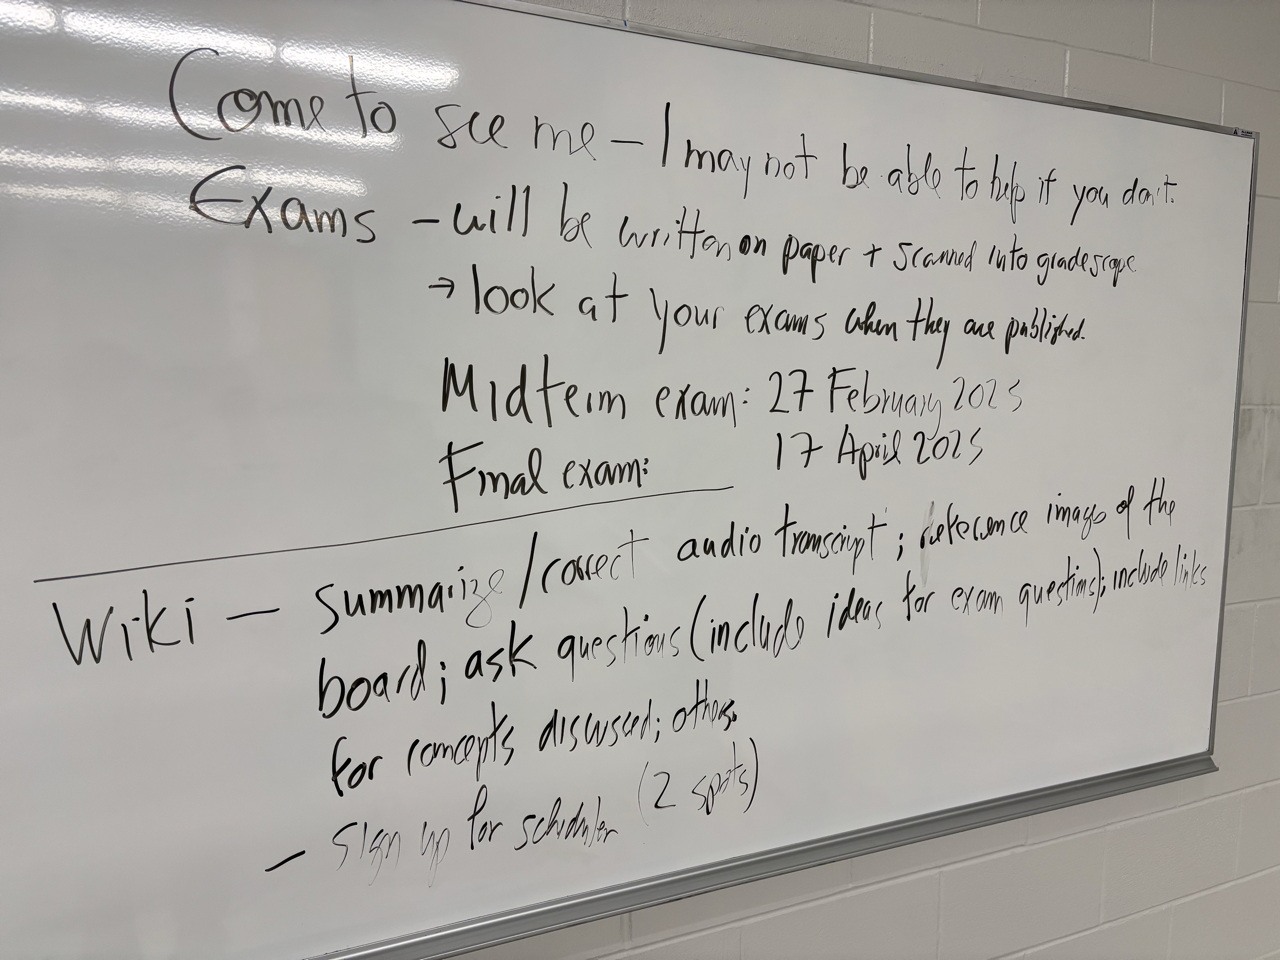 Come to see me – I may not be able to help if you don't.
Exams – will be written on paper + scanned into gradescope
→ look at your exams when they are published.
Midterm exam: 27 February 2025
Final exam: 17 April 2025
Wiki – summarize/correct audio transcript; reference images of the
board; ask questions (include ideas for exam questions); include links
for concepts discussed; others.
– sign up for scheduler (2 spots)